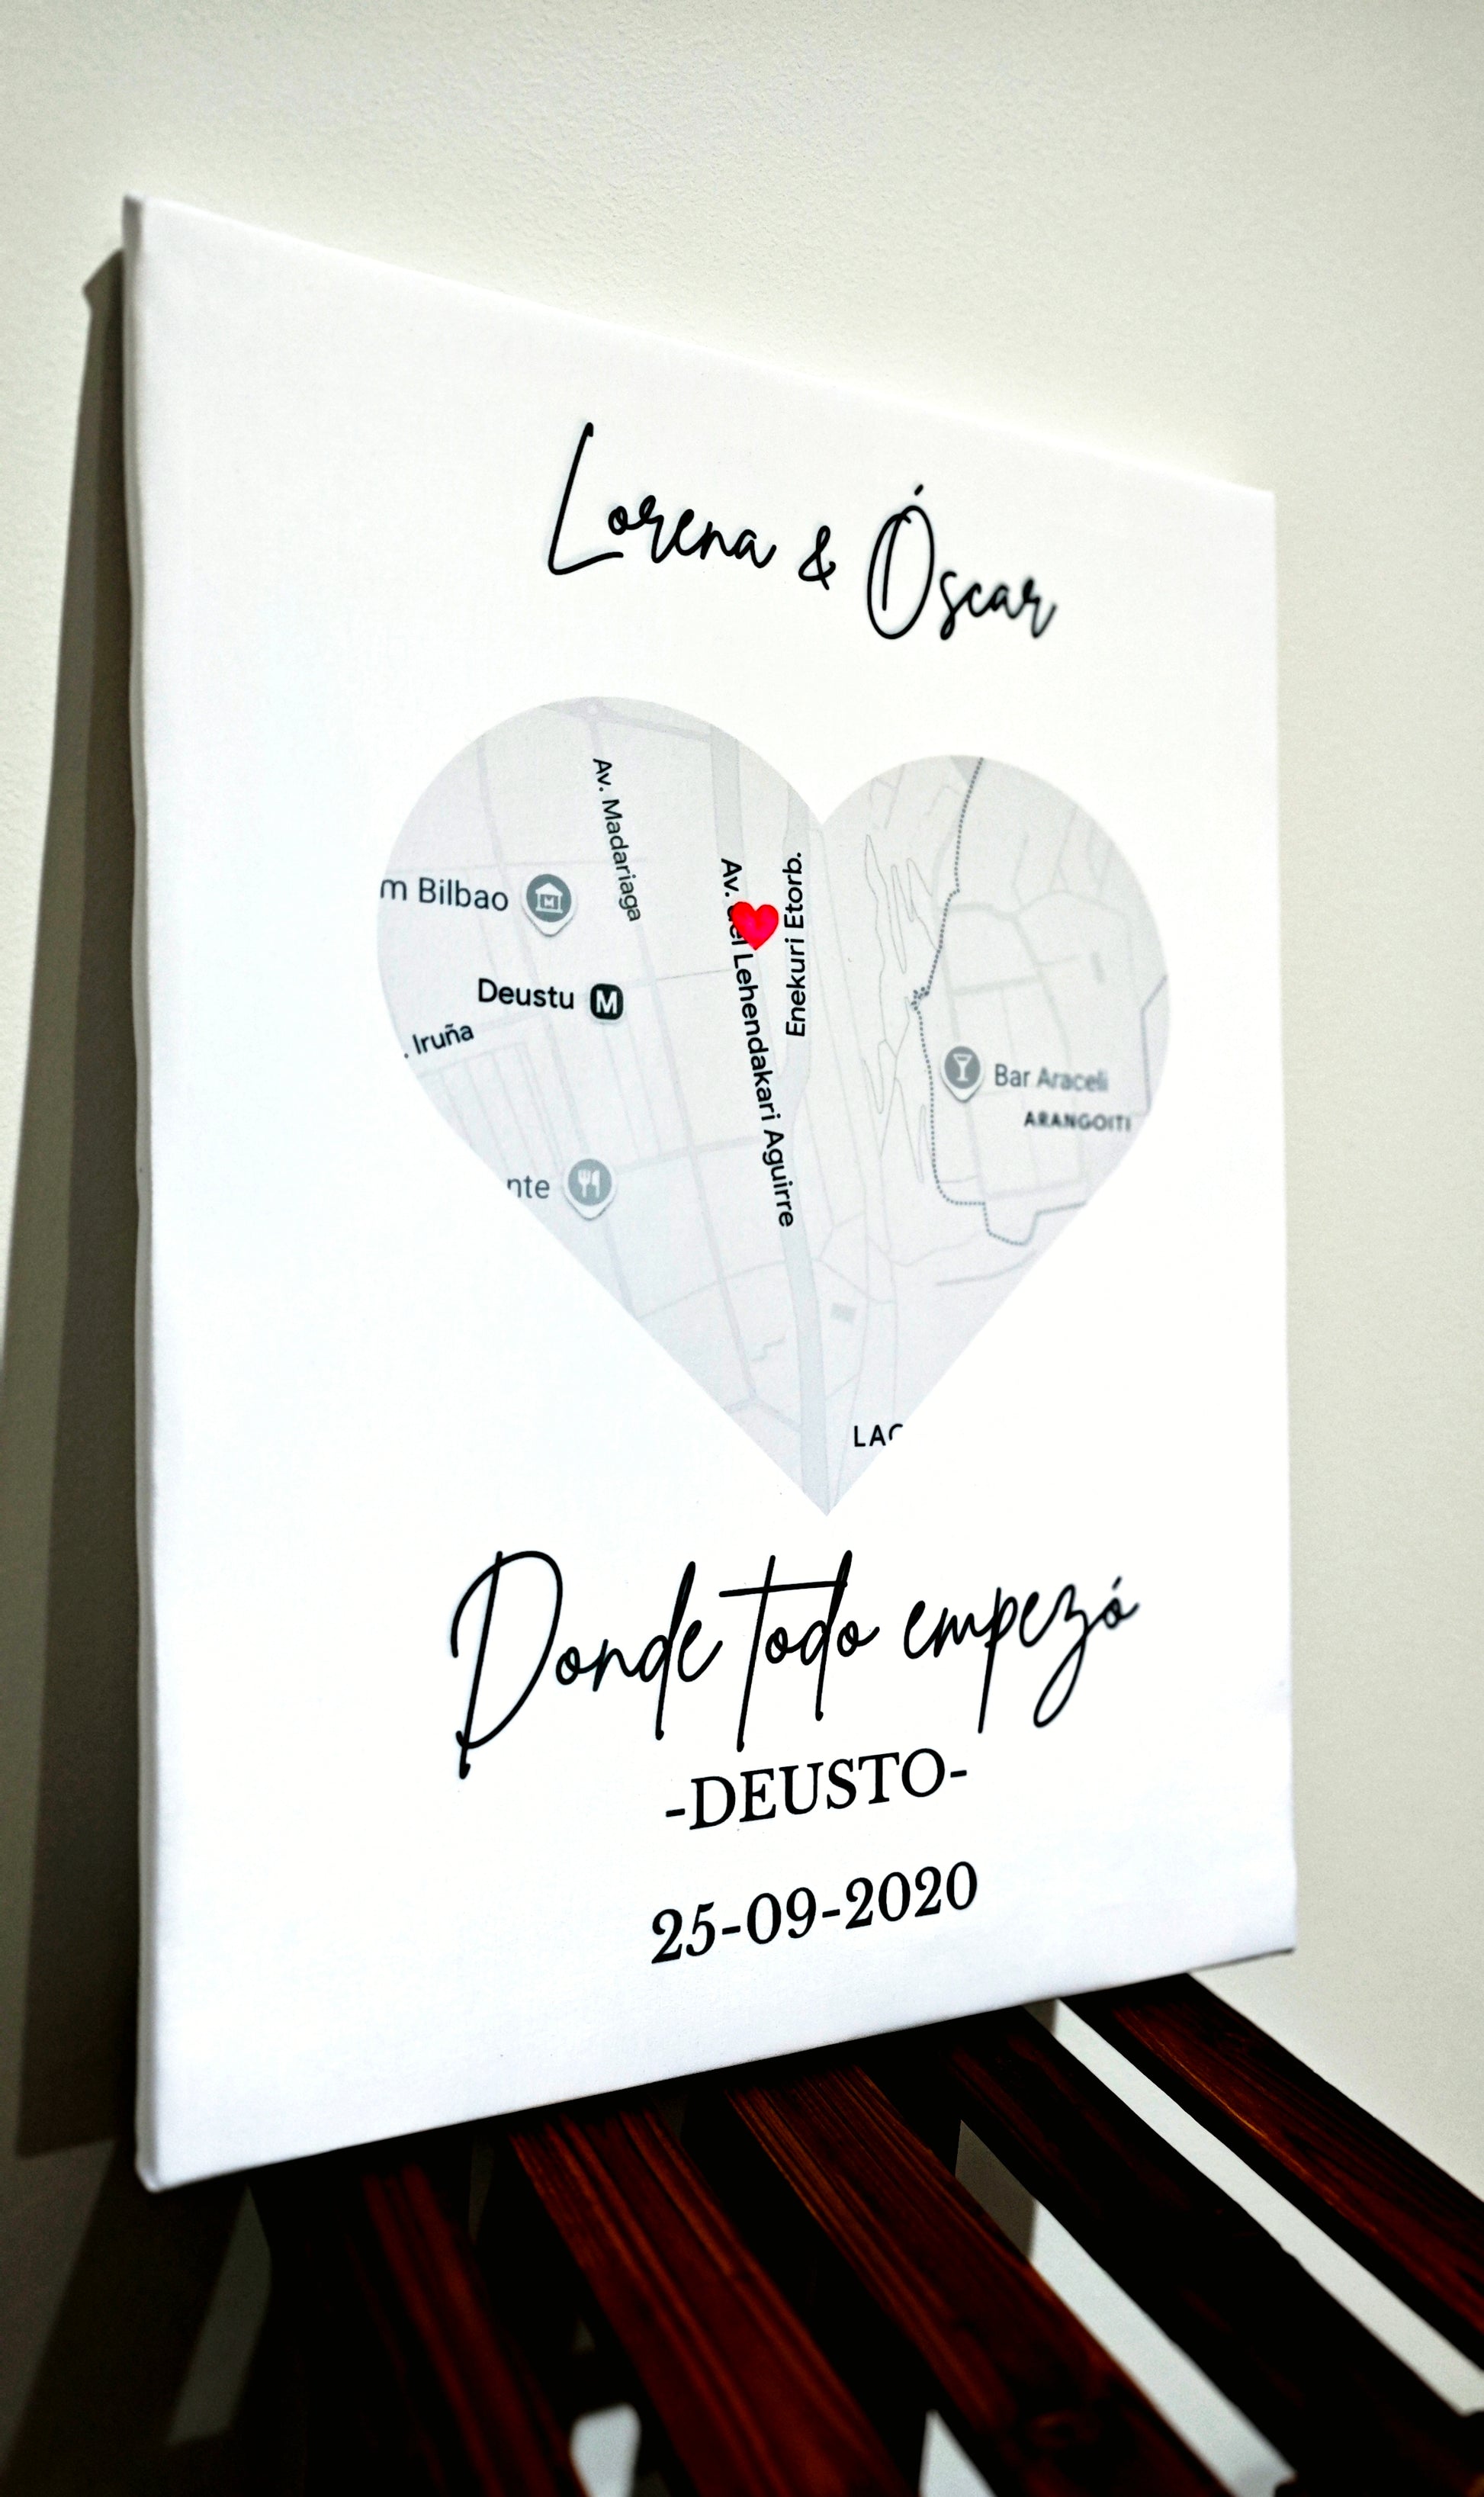 Lorena & Óscar
Av. Madariaga
m Bilbao
Av. del Lehendakari Aguirre
Enekuri Etorb.
Deustu M
. Iruña
Bar Araceli
ARANGOITI
nte
Donde todo empezó
-DEUSTO-
25-09-2020